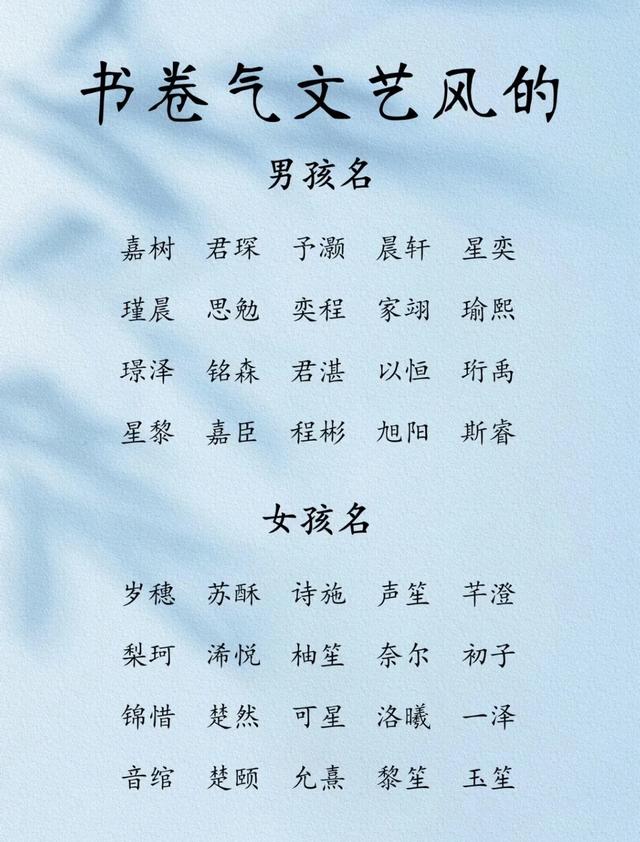 书卷气文艺风的
男孩名
嘉树 君琛 予灏 晨轩 星奕
瑾晨 思勉 奕程 家翊 瑜熙
璟泽 铭森 君湛 以恒 珩禹
星黎 嘉臣 程彬 旭阳 斯睿
女孩名
岁穗 苏酥 诗施 声笙 芊澄
梨珂 浠悦 柚笙 奈尔 初子
锦惜 楚然 可星 洛曦 一泽
音绾 楚颐 允熹 黎笙 玉笙